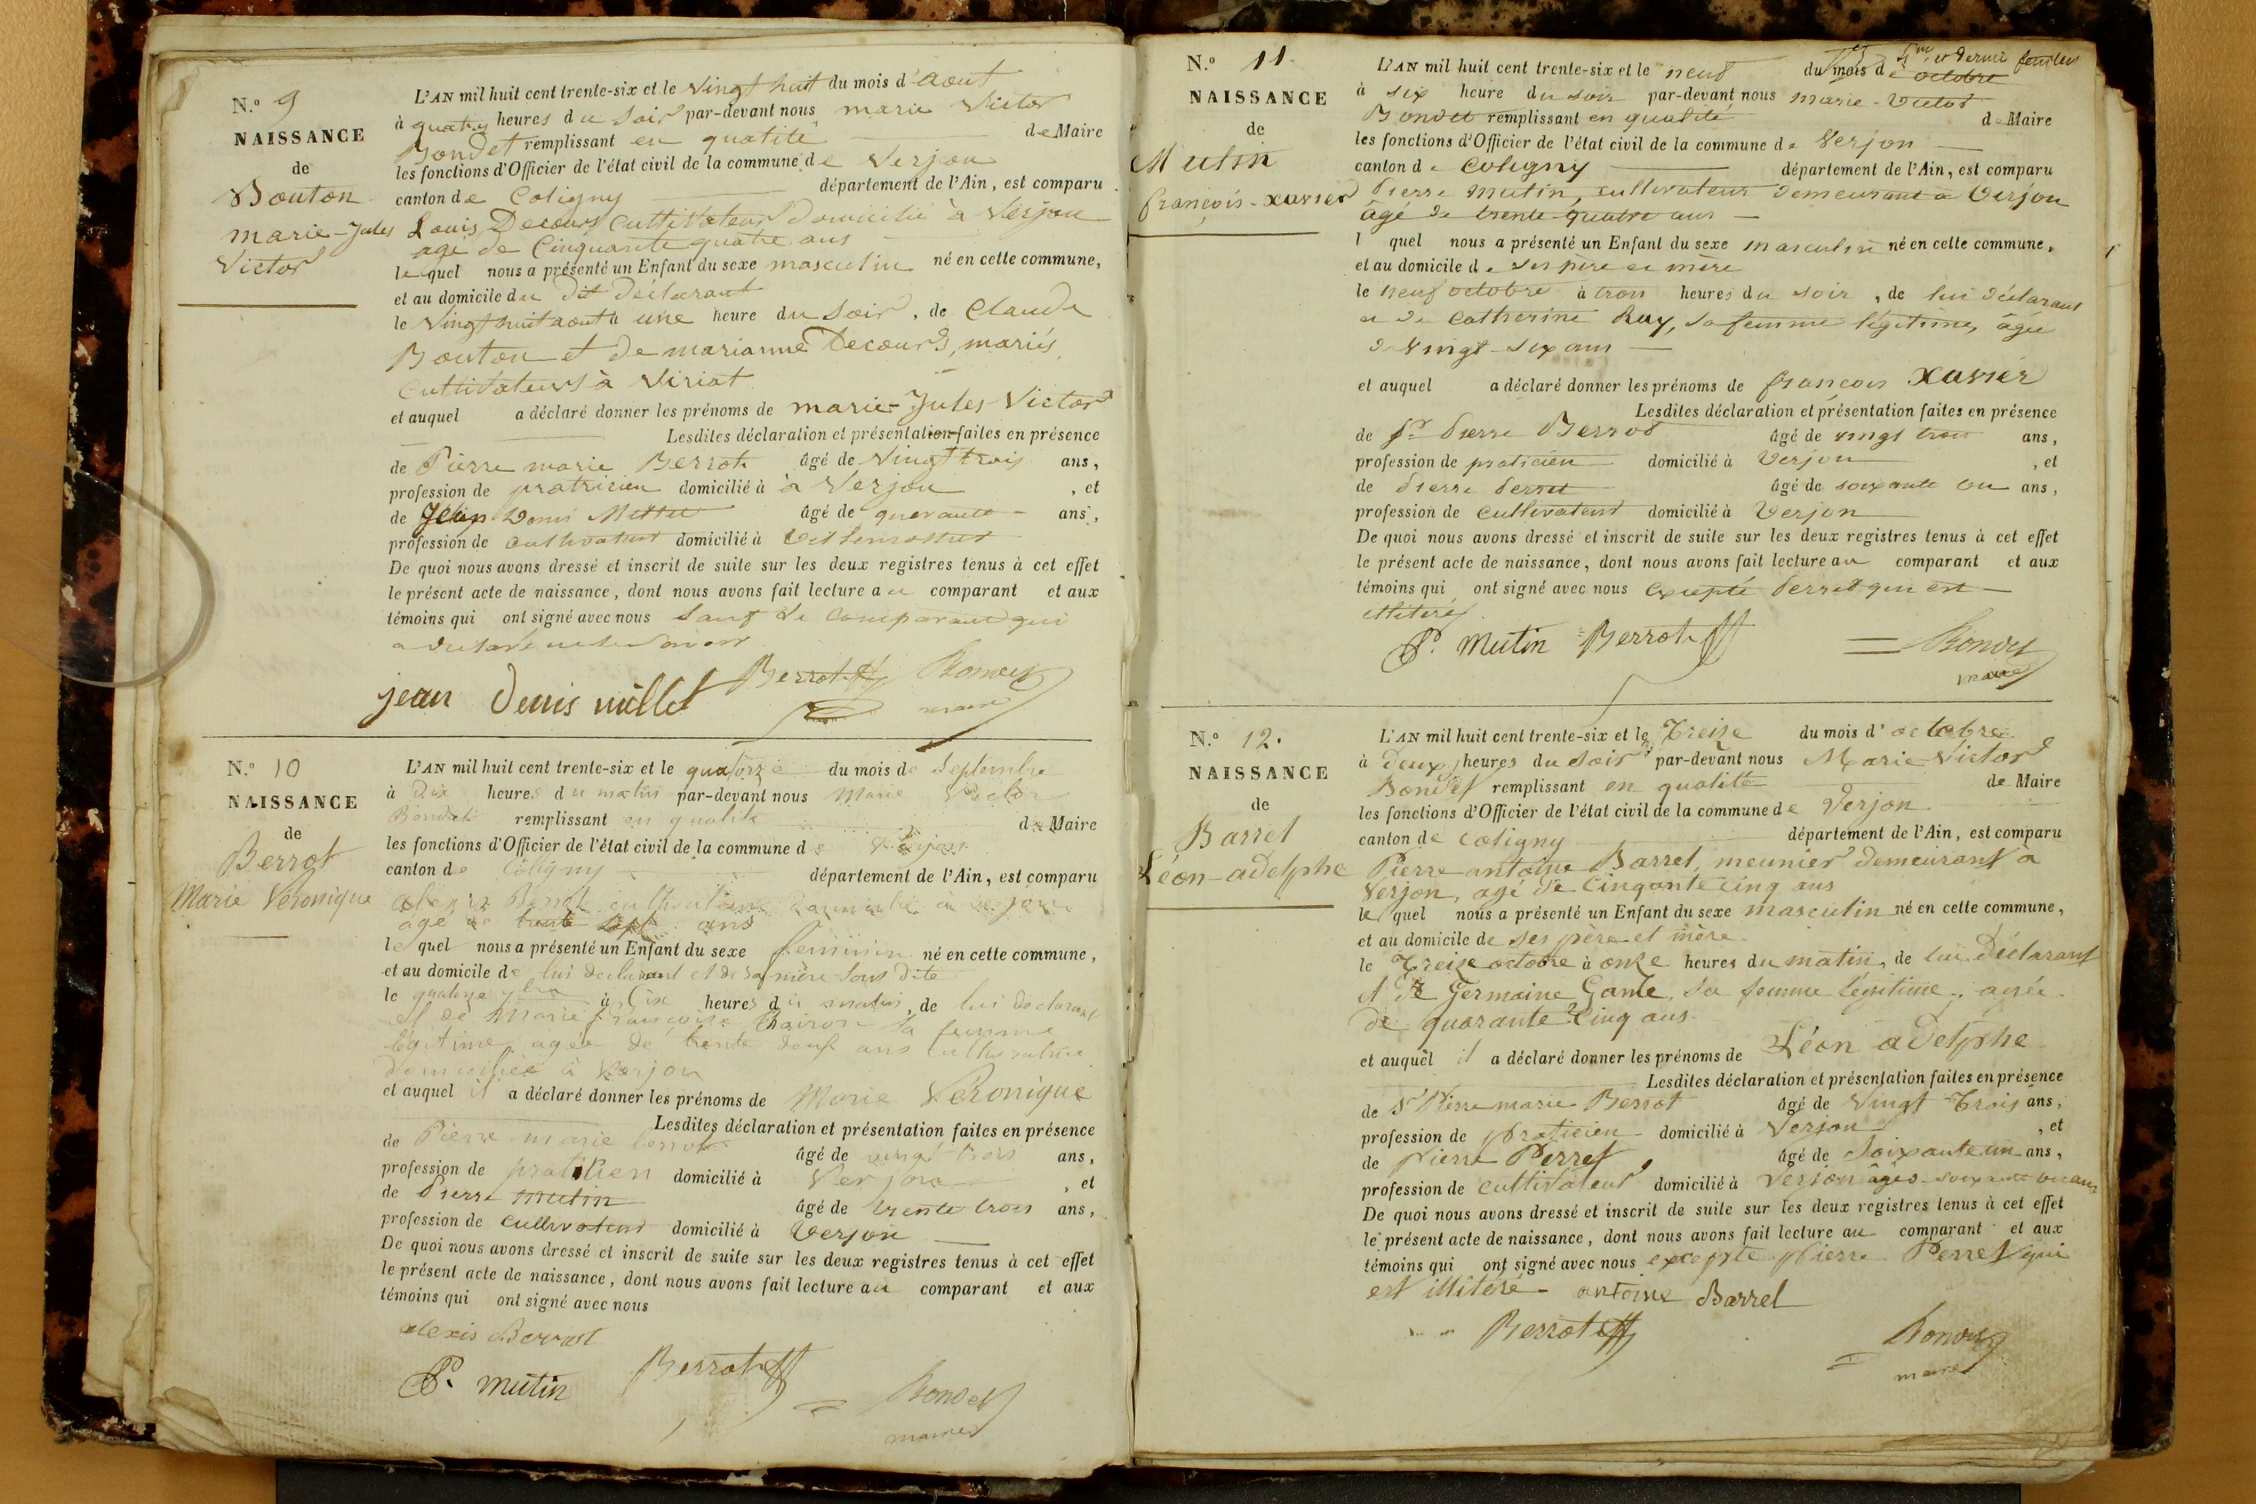 N.º 9
NAISSANCE
de
Bouton
marie-Jules
Victor
L'AN mil huit cent trente-six et le vingt huit du mois d'aout
à quatre heures du soir par-devant nous marie Victor
Bondet remplissant en qualité de Maire
les fonctions d'Officier de l'état civil de la commune de Verjon
canton de Coligny département de l'Ain, est comparu
Louis Decours cultivateur domicilié à Verjon
agé de Cinquante quatre ans
le quel nous a présenté un Enfant du sexe masculin né en cette commune,
et au domicile du dit déclarant
le Vingt huit aout à une heure du soir, de Claude
Bouton et de marianne Decours, mariés,
cultivateurs à Viriat
et auquel a déclaré donner les prénoms de marie-Jules Victor
Lesdites déclaration et présentation faites en présence
de Pierre marie Berrot âgé de Vingt trois ans,
profession de pratricien domicilié à à Verjon, et
de Jean Denis Millet âgé de quarante ans,
profession de cultivateur domicilié à
De quoi nous avons dressé et inscrit de suite sur les deux registres tenus à cet effet
le présent acte de naissance, dont nous avons fait lecture au comparant et aux
témoins qui ont signé avec nous sauf le comparant qui
a déclaré ne le savoir
jean denis millet Berrot Bondet
maire
N.º 10
NAISSANCE
de
Berrot
Marie Veronique
L'AN mil huit cent trente-six et le quatorze du mois de Septembre
à dix heures du matin par-devant nous Marie Victor
Bondet remplissant en qualité de Maire
les fonctions d'Officier de l'état civil de la commune de Verjon
canton de Coligny département de l'Ain, est comparu
alexis Berrot cultivateur domicilié à Verjon
agé de trente sept ans
le quel nous a présenté un Enfant du sexe feminin né en cette commune,
et au domicile de lui déclarant et de sa mère sous dite
le quatorze 7bre à Six heures du matin, de lui declarant
et de Marie françoise sa femme
légitime agée de trente deux ans cultivatrice
domiciliée à Verjon
et auquel il a déclaré donner les prénoms de Marie Veronique
Lesdites déclaration et présentation faites en présence
de Pierre marie berrot âgé de vingt trois ans,
profession de praticien domicilié à Verjon, et
de Pierre mutin âgé de trente trois ans,
profession de cultivateur domicilié à Verjon
De quoi nous avons dressé et inscrit de suite sur les deux registres tenus à cet effet
le présent acte de naissance, dont nous avons fait lecture au comparant et aux
témoins qui ont signé avec nous
alexis Berrot
P. mutin Berrot Bondet
maire
N.º 11
NAISSANCE
de
Mutin
françois-xavier
5me et dernier feuillet
L'AN mil huit cent trente-six et le neuf du mois d'octobre
à six heure du soir par-devant nous marie-Victor
Bondet remplissant en qualité de Maire
les fonctions d'Officier de l'état civil de la commune de Verjon
canton de Coligny département de l'Ain, est comparu
Pierre Mutin, cultivateur demeurant à Verjon
âgé de trente-quatre ans
l quel nous a présenté un Enfant du sexe masculin né en cette commune,
et au domicile de ses père et mère
le neuf octobre à trois heures du soir, de lui déclarant
et de Catherine Ruy, sa femme légitime, âgée
de vingt-six ans
et auquel a déclaré donner les prénoms de françois Xavier
Lesdites déclaration et présentation faites en présence
de Sr Pierre Berrot âgé de vingt trois ans,
profession de praticien domicilié à Verjon, et
de Pierre Perret âgé de soixante un ans,
profession de cultivateur domicilié à Verjon
De quoi nous avons dressé et inscrit de suite sur les deux registres tenus à cet effet
le présent acte de naissance, dont nous avons fait lecture au comparant et aux
témoins qui ont signé avec nous excepté Perret qui est
illitéré
P. Mutin Berrot Bondet
maire
N.º 12.
NAISSANCE
de
Barrel
Léon-adelphe
L'AN mil huit cent trente-six et le Treize du mois d'octobre
à deux heures du Soir par-devant nous Marie-Victor
Bondet remplissant en qualitté de Maire
les fonctions d'Officier de l'état civil de la commune de Verjon
canton de Coligny département de l'Ain, est comparu
Pierre antoine Barrel, meunier demeurant à
Verjon, agé de Cinqante cinq ans
le quel nous a présenté un Enfant du sexe masculin né en cette commune,
et au domicile de ses père et mère
le Treize octobre à onze heures du matin, de lui Déclarant
et de Germaine Game, sa femme légitime, agée
de quarante Cinq ans
et auquel il a déclaré donner les prénoms de Léon adelphe
Lesdites déclaration et présentation faites en présence
de Sr Pierre marie Berrot âgé de Vingt Trois ans,
profession de praticien domicilié à Verjon, et
de Pierre Perret âgé de Soixante un ans,
profession de cultivateur domicilié à Verjon âgés soixante un ans
De quoi nous avons dressé et inscrit de suite sur les deux registres tenus à cet effet
le présent acte de naissance, dont nous avons fait lecture au comparant et aux
témoins qui ont signé avec nous excepté Pierre Perret qui
est illitéré antoine Barrel
Berrot Bondet
maire